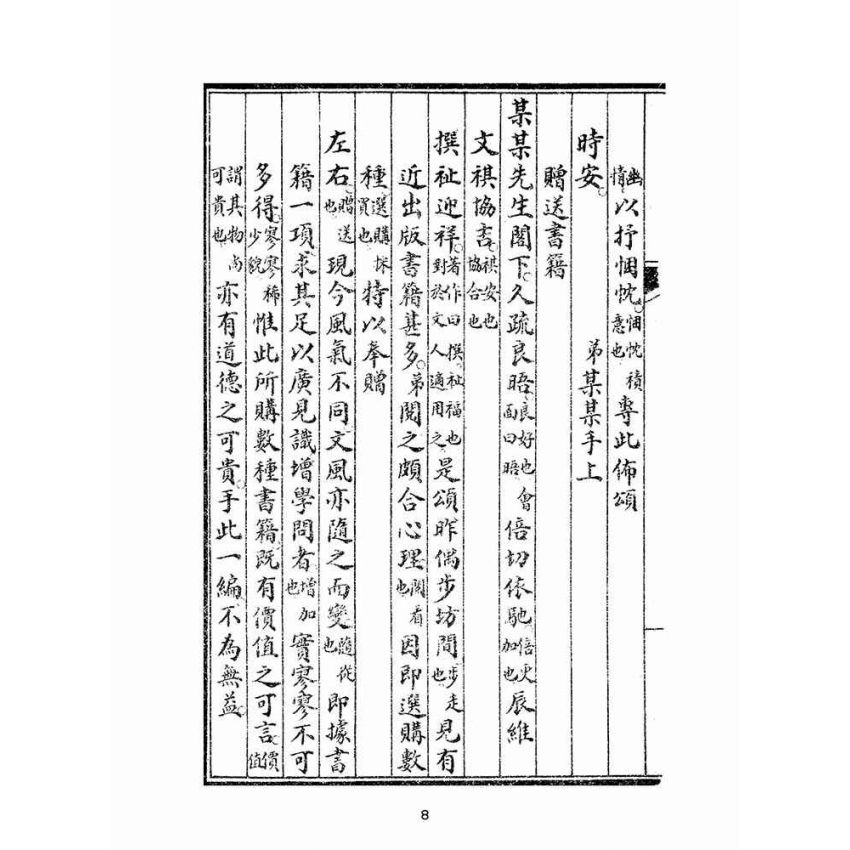 幽情以抒悃忱悃忱積意也專此佈頌
時安　弟某某手上
贈送書籍
某某先生閣下久疏良晤良好也會面曰晤倍切依馳倍更加也辰維
文祺協吉祺安也協合也
撰祉迎祥著作曰撰祉福也對於文人適用之是頌昨偶步坊間步走也見有
近出版書籍甚多弟閱之頗合心理閱看也因即選購數
種選購採買也特以奉贈
左右贈送也現今風氣不同文風亦隨之而變隨從也即據書
籍一項求其足以廣見識增學問者增加也實寥寥不可
多得寥寥稀少貌惟此所購數種書籍既有價值之可言價值
謂其物尚可貴也亦有道德之可貴手此一編不為無益
8